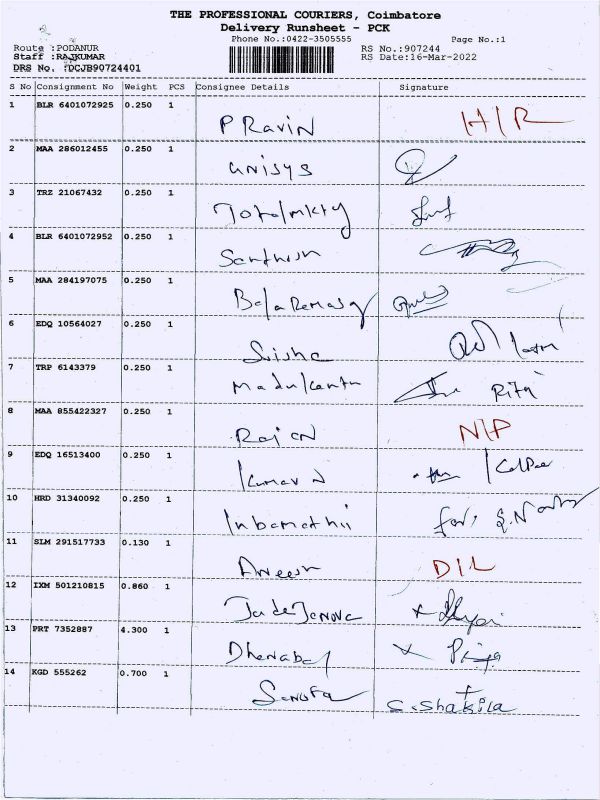 THE PROFESSIONAL COURIERS, Coimbatore
Delivery Runsheet - PCK
Phone No.:0422-3505555 Page No.:1
Route :PODANUR RS No.:907244
Staff :RAJKUMAR RS Date:16-Mar-2022
DRS No. :DCJB90724401
S No Consignment No Weight PCS Consignee Details Signature
1 BLR 6401072925 0.250 1
P Ravin H/R
2 MAA 286012455 0.250 1
unisys
3 TRZ 21067432 0.250 1
4 BLR 6401072952 0.250 1
5 MAA 284197075 0.250 1
6 EDQ 10564027 0.250 1
7 TRP 6143379 0.250 1
Rita
8 MAA 855422327 0.250 1
Rajan N/P
9 EDQ 16513400 0.250 1
Kumar
10 HRD 31340092 0.250 1
Inbamathii for,
11 SLM 291517733 0.130 1
D/L
12 IXM 501210815 0.860 1
13 PRT 7352887 4.300 1
Dhenabal
14 KGD 555262 0.700 1
S.Shakila